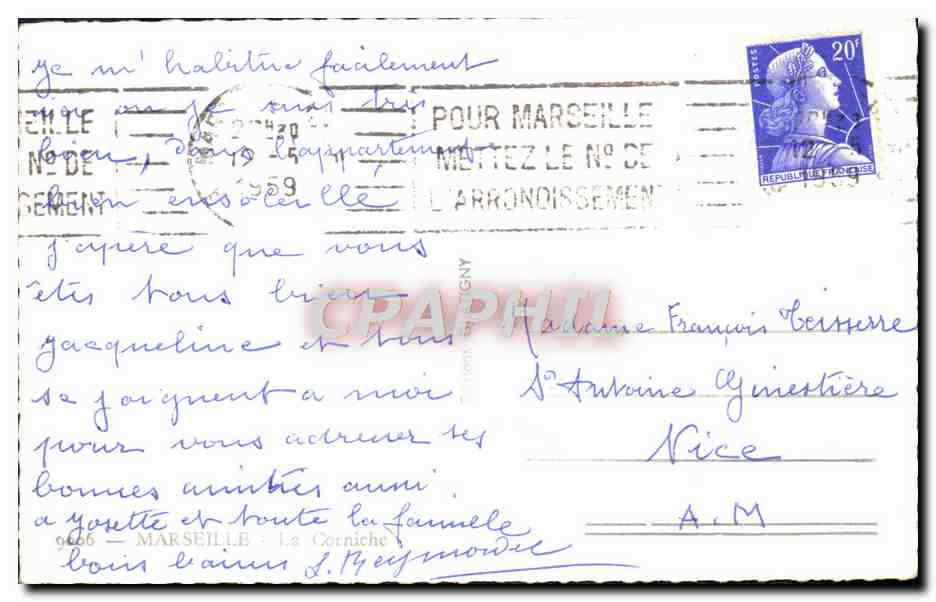 je m'habitue facilement
ici on je suis très
bien, dans l'appartement
bien ensoleillé
j'espère que vous
êtes tous bien
Jacqueline et tous
se joignent a moi
pour vous adresser ses
bonnes amitiés aussi
a Josette et toute la famille
bons baisers
9006 — MARSEILLE - La Corniche
EILLE
N° DE
GEMENT
12 - 5
1959
POUR MARSEILLE
METTEZ LE N° DE
L'ARRONDISSEMENT
20F
POSTES
REPUBLIQUE FRANÇAISE
CPAPHIL
Madame François Teisserre
St Antoine Ginestière
Nice
A.M